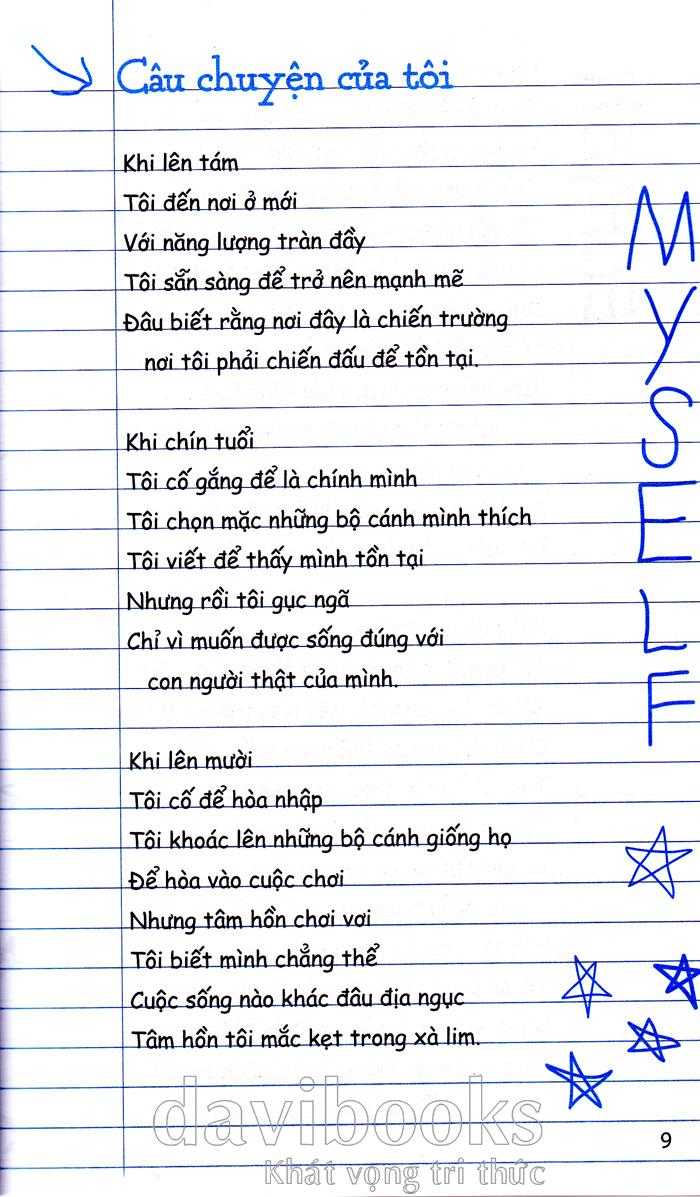 Câu chuyện của tôi
Khi lên tám
Tôi đến nơi ở mới
Với năng lượng tràn đầy
Tôi sẵn sàng để trở nên mạnh mẽ
Đâu biết rằng nơi đây là chiến trường
nơi tôi phải chiến đấu để tồn tại.
Khi chín tuổi
Tôi cố gắng để là chính mình
Tôi chọn mặc những bộ cánh mình thích
Tôi viết để thấy mình tồn tại
Nhưng rồi tôi gục ngã
Chỉ vì muốn được sống đúng với
con người thật của mình.
Khi lên mười
Tôi cố để hòa nhập
Tôi khoác lên những bộ cánh giống họ
Để hòa vào cuộc chơi
Nhưng tâm hồn chơi vơi
Tôi biết mình chẳng thể
Cuộc sống nào khác đâu địa ngục
Tâm hồn tôi mắc kẹt trong xà lim.
MYSELF
davibooks
Khát vọng tri thức
9